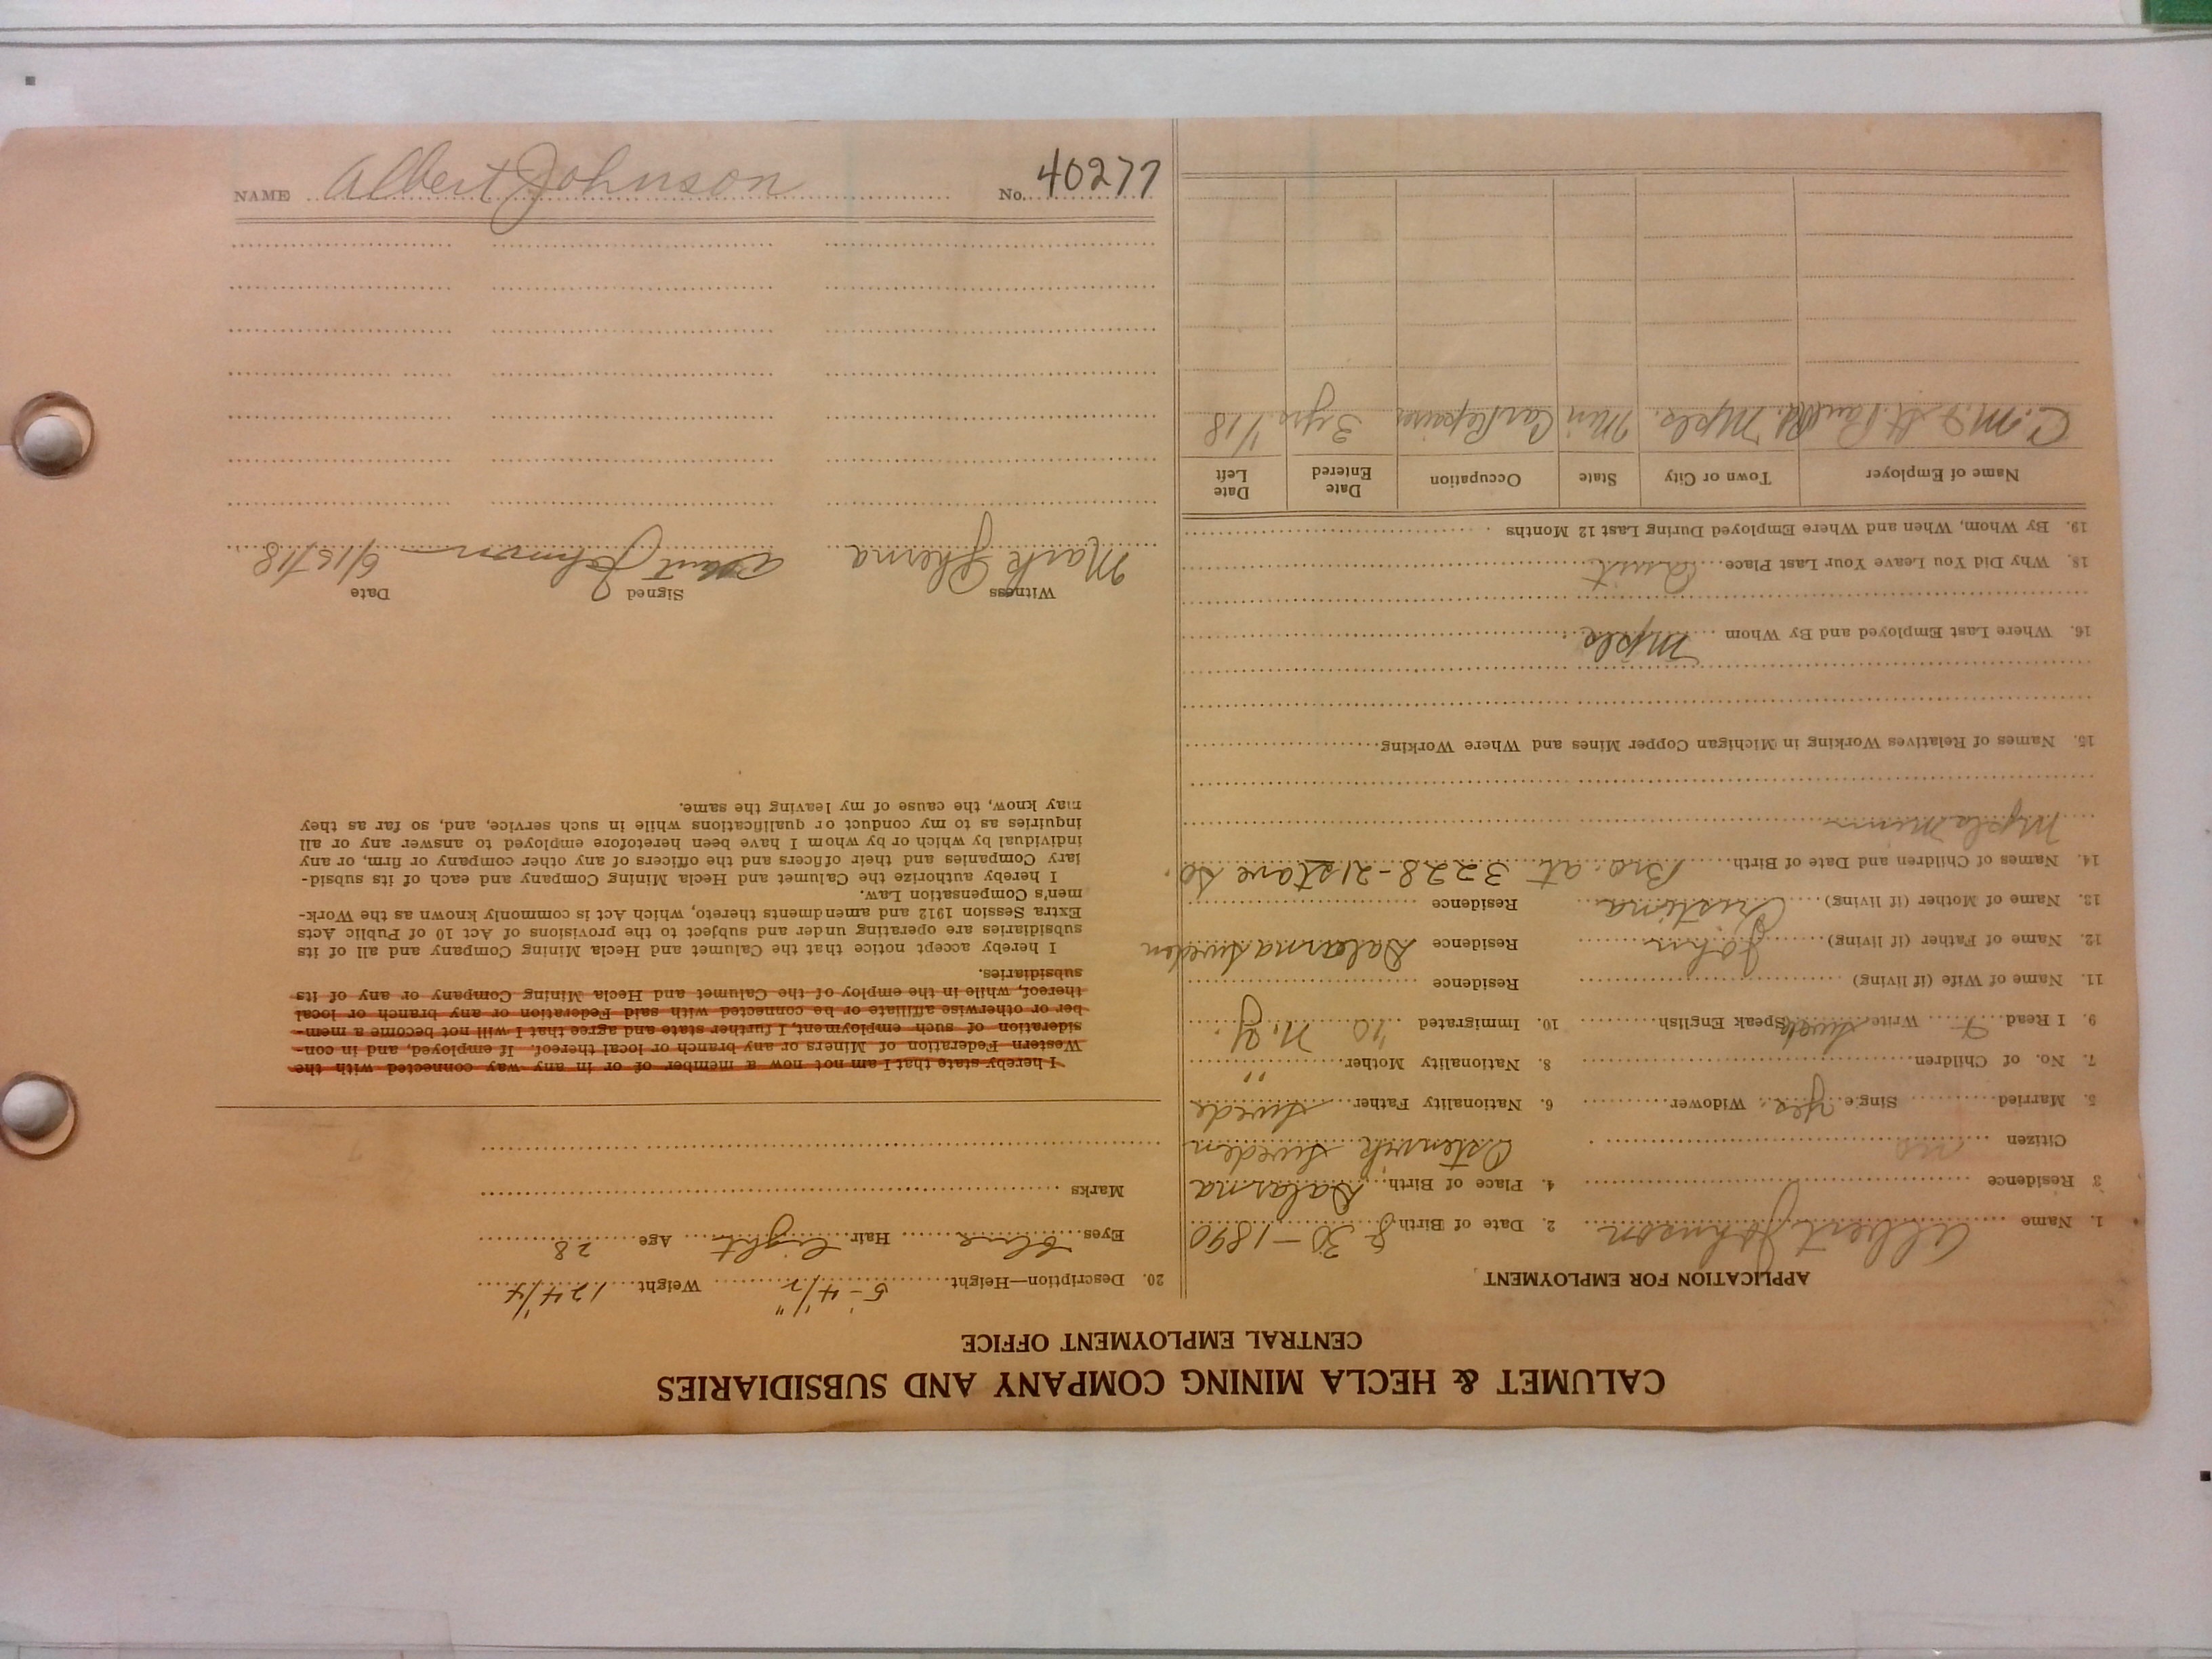 CALUMET & HECLA MINING COMPANY AND SUBSIDIARIES
CENTRAL EMPLOYMENT OFFICE
APPLICATION FOR EMPLOYMENT
1. Name Albert Johnson 2. Date of Birth 8-30-1890
3 Residence 4. Place of Birth Dalarna
Citizen no Sweden
5. Married Single yes Widower 6. Nationality Father Swede
7. No. of Children 8. Nationality Mother "
9. I Read Write Swede Speak English 10. Immigrated '10 N.Y.
11. Name of Wife (if living) Residence
12. Name of Father (if living) John Residence Dalarna Sweden
13. Name of Mother (if living) Cristina Residence
14. Names of Children and Date of Birth Bro. at 3228-21st ave So.
Mpls Minn
15. Names of Relatives Working in Michigan Copper Mines and Where Working
16. Where Last Employed and By Whom Mpls
18. Why Did You Leave Your Last Place Quit
19. By Whom, When and Where Employed During Last 12 Months
Name of Employer Town or City State Occupation Date Entered Date Left
C. M. & St. Paul Rd. Mpls. Min Car Repairer 3 yrs 1/18
20. Description—Height 5'-4 1/2" Weight 124 1/4
Eyes Blue Hair Light Age 28
Marks
I hereby state that I am not now a member of or in any way connected with the
Western Federation of Miners or any branch or local thereof. If employed, and in con-
sideration of such employment, I further state and agree that I will not become a mem-
ber or otherwise affiliate or be connected with said Federation or any branch or local
thereof, while in the employ of the Calumet and Hecla Mining Company or any of its
subsidiaries.
I hereby accept notice that the Calumet and Hecla Mining Company and all of its
subsidiaries are operating under and subject to the provisions of Act 10 of Public Acts
Extra Session 1912 and amendments thereto, which Act is commonly known as the Work-
men's Compensation Law.
I hereby authorize the Calumet and Hecla Mining Company and each of its subsid-
iary Companies and their officers and the officers of any other company or firm, or any
individual by which or by whom I have been heretofore employed to answer any or all
inquiries as to my conduct or qualifications while in such service, and, so far as they
may know, the cause of my leaving the same.
Witness Signed Date
Mark Johnson 6/15/18
NAME Albert Johnson No. 40277